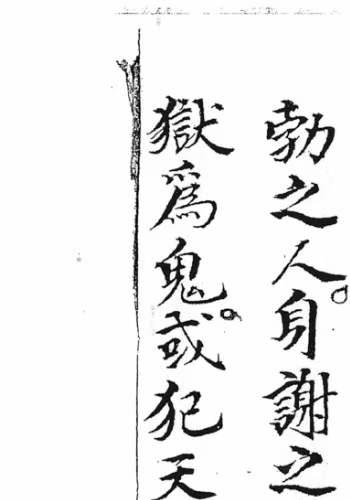 勃之人身謝之
獄為鬼或犯天